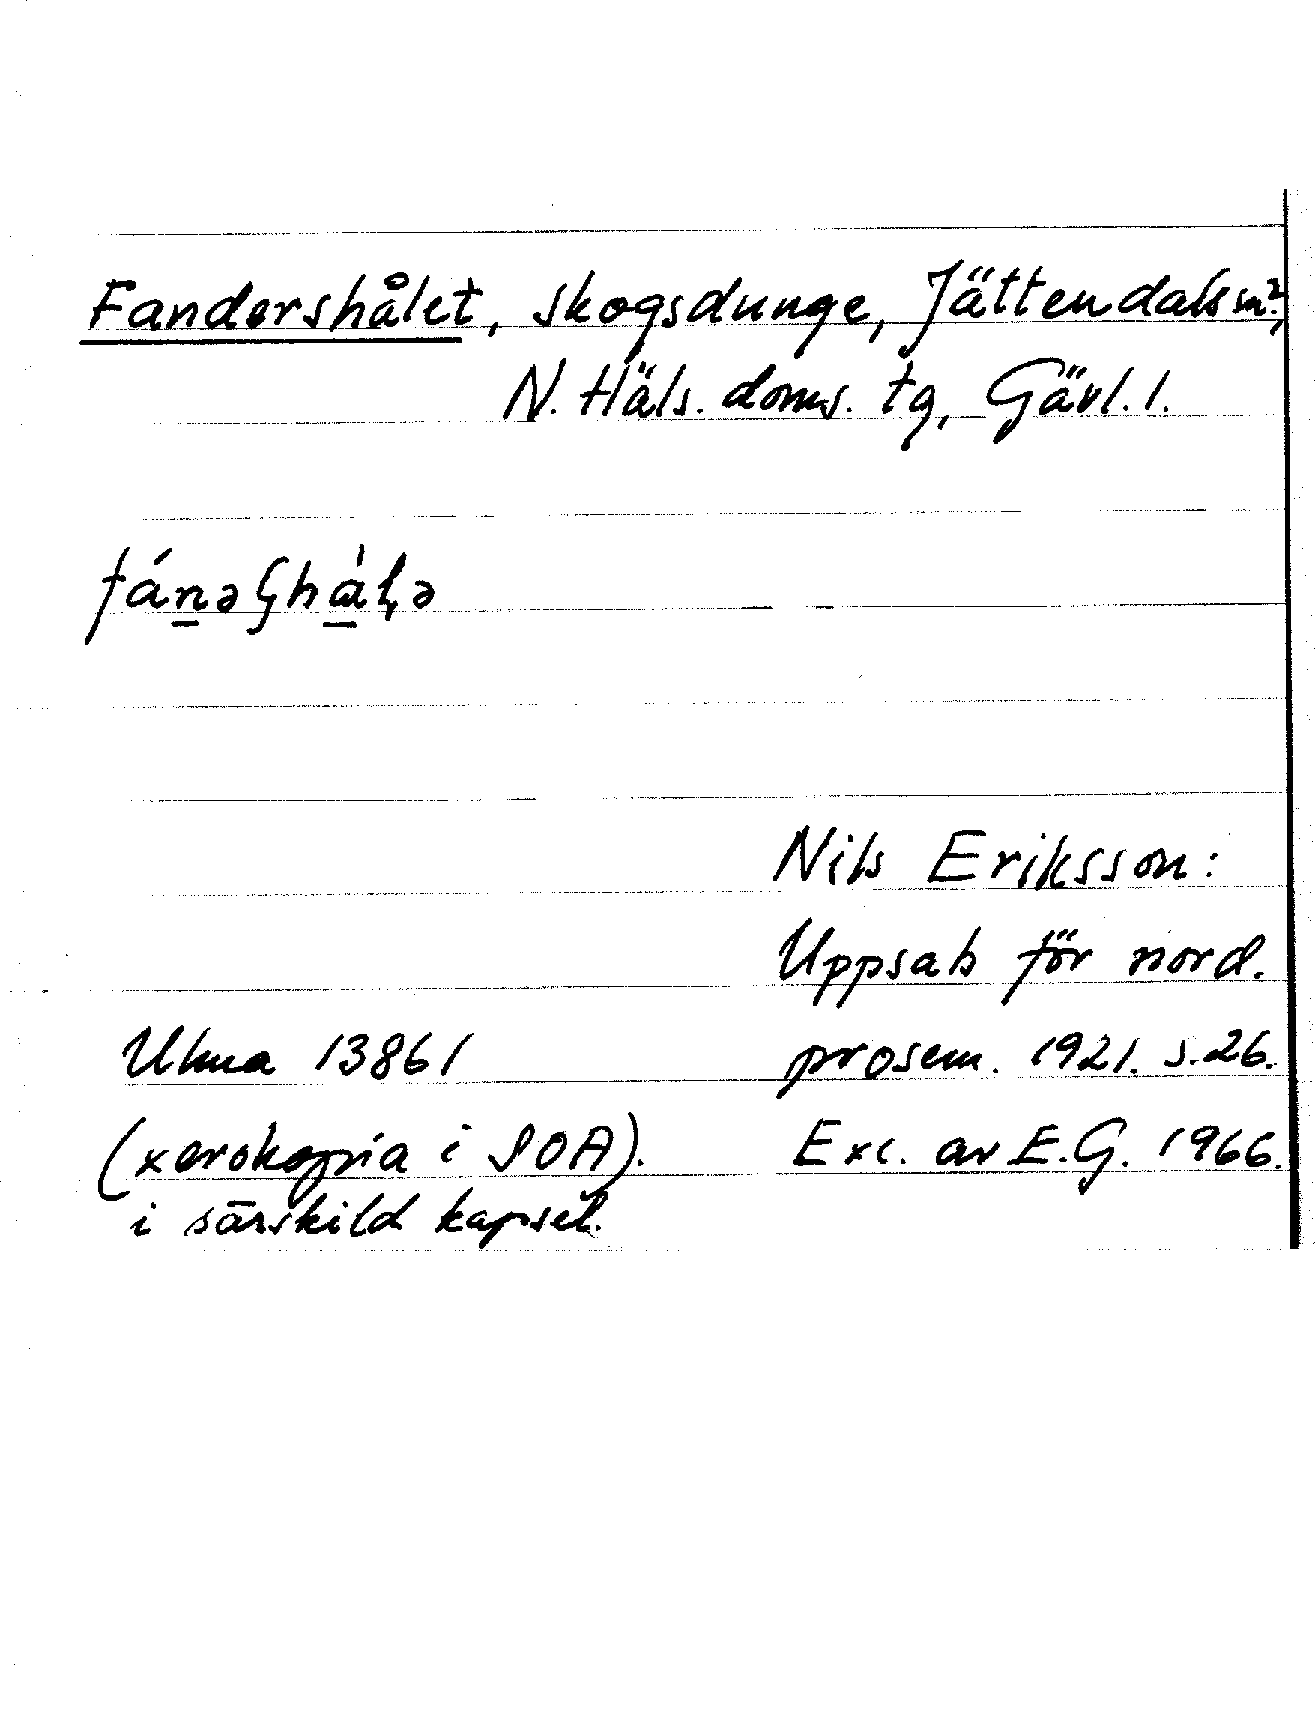 Fandershålet, skogsdunge, Jättendals sn?,
N. Häls. doms. tg, Gävl. l.
Nils Eriksson:
Uppsats för nord.
Ulma 13861 prosem. 1921. s. 26.
(xerokopia i SOA). Exc. av E.G. 1966.
i särskild kapsel.